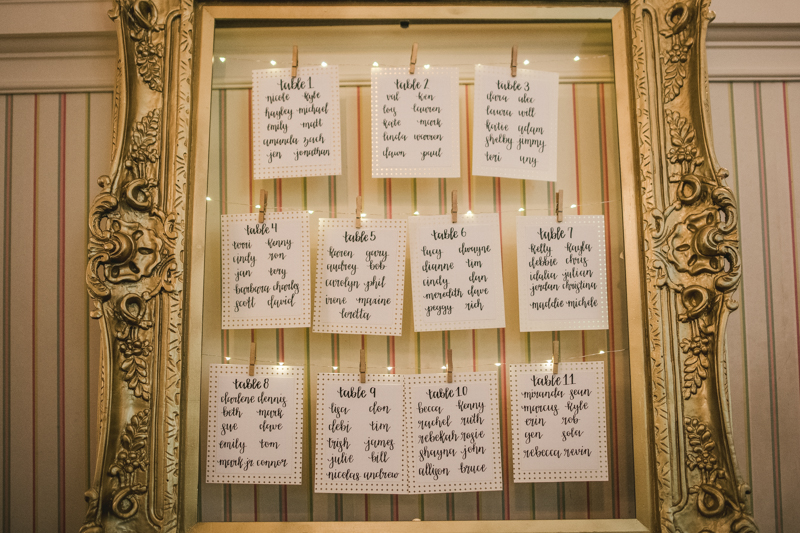 table 1
nicole kyle
hayley michael
emily matt
amanda zach
jen jonathan
table 2
val ken
lois lauren
kate mark
linda warren
dawn paul
table 3
dara
laura will
katie adam
shelby jimmy
tori
table 4
terri kenny
cindy ron
jan
barbara charles
scott david
table 5
karen gary
audrey bob
carolyn phil
irene maxine
loretta
table 6
lucy dwayne
dianne tim
cindy dan
meredith dave
peggy rich
table 7
kelly kayla
debbie chris
idalia julian
jordan christina
maddie michele
table 8
darlene dennis
beth mark
sue dave
emily tom
mark jr connor
table 9
lisa don
debi tim
trish james
julie bill
nicolas andrew
table 10
becca kenny
rachel ruth
rebekah rosie
shayna john
allison bruce
table 11
miranda sean
marcus kyle
erin rob
jen
rebecca kevin